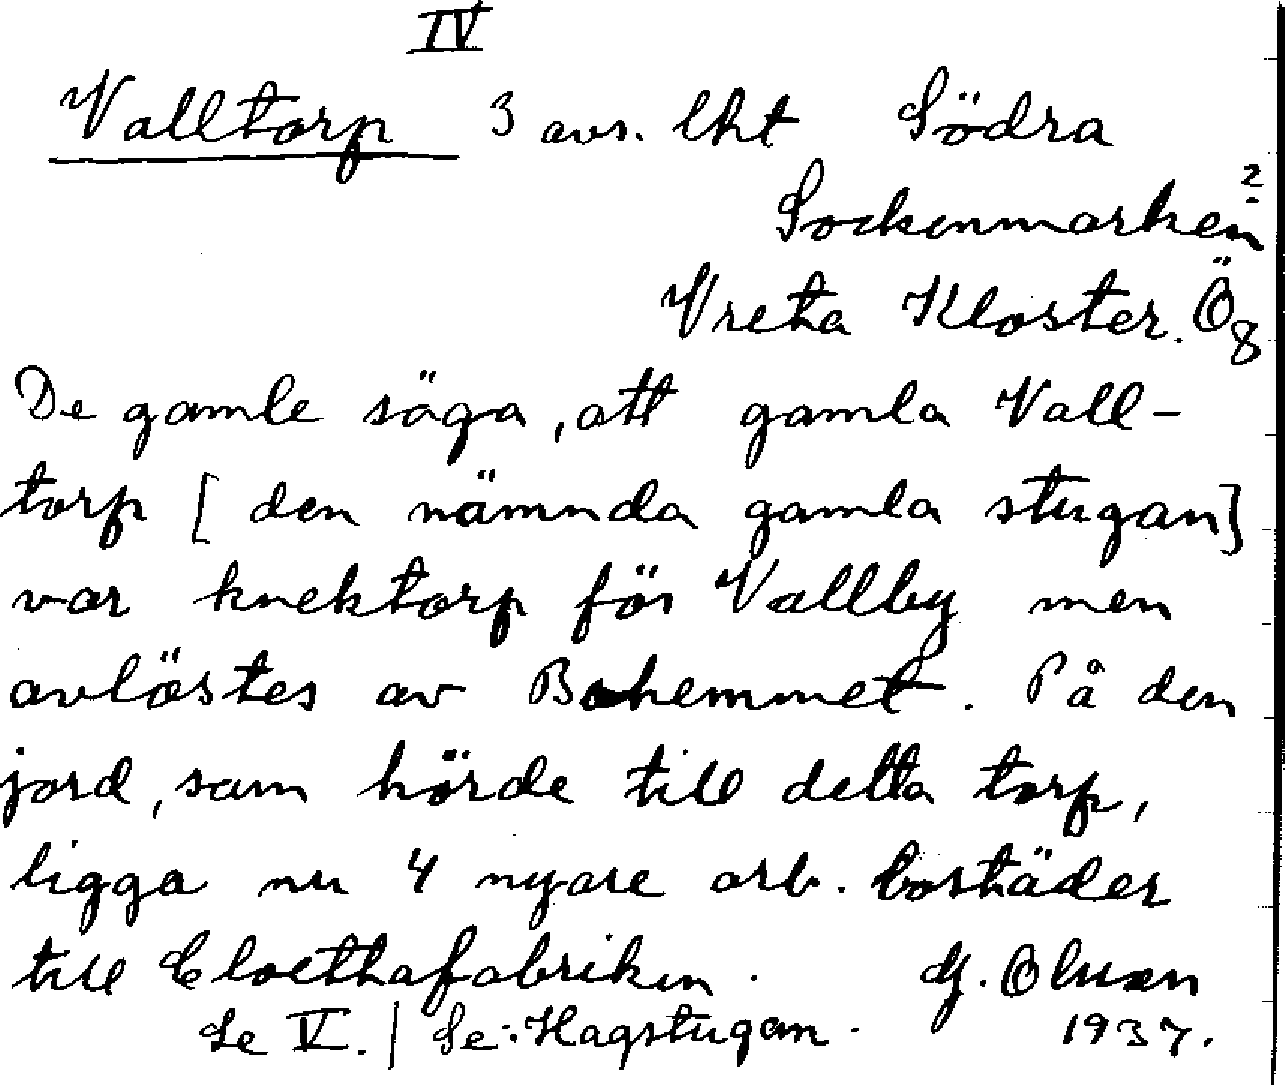 IV
Valltorp 3 avs. lht Södra
Sockenmarken 2
Vreta Kloster. Ög
De gamle säga, att gamla Vall-
torp [den nämnda gamla stugan]
var knektorp för Vallby men
avlöstes av Bohemmet. På den
jord, som hörde till detta torp,
ligga nu 4 nyare arb. bostäder
till Cloettafabriken. G. Olsson
Se V. | Se: Hagstugan. 1937.